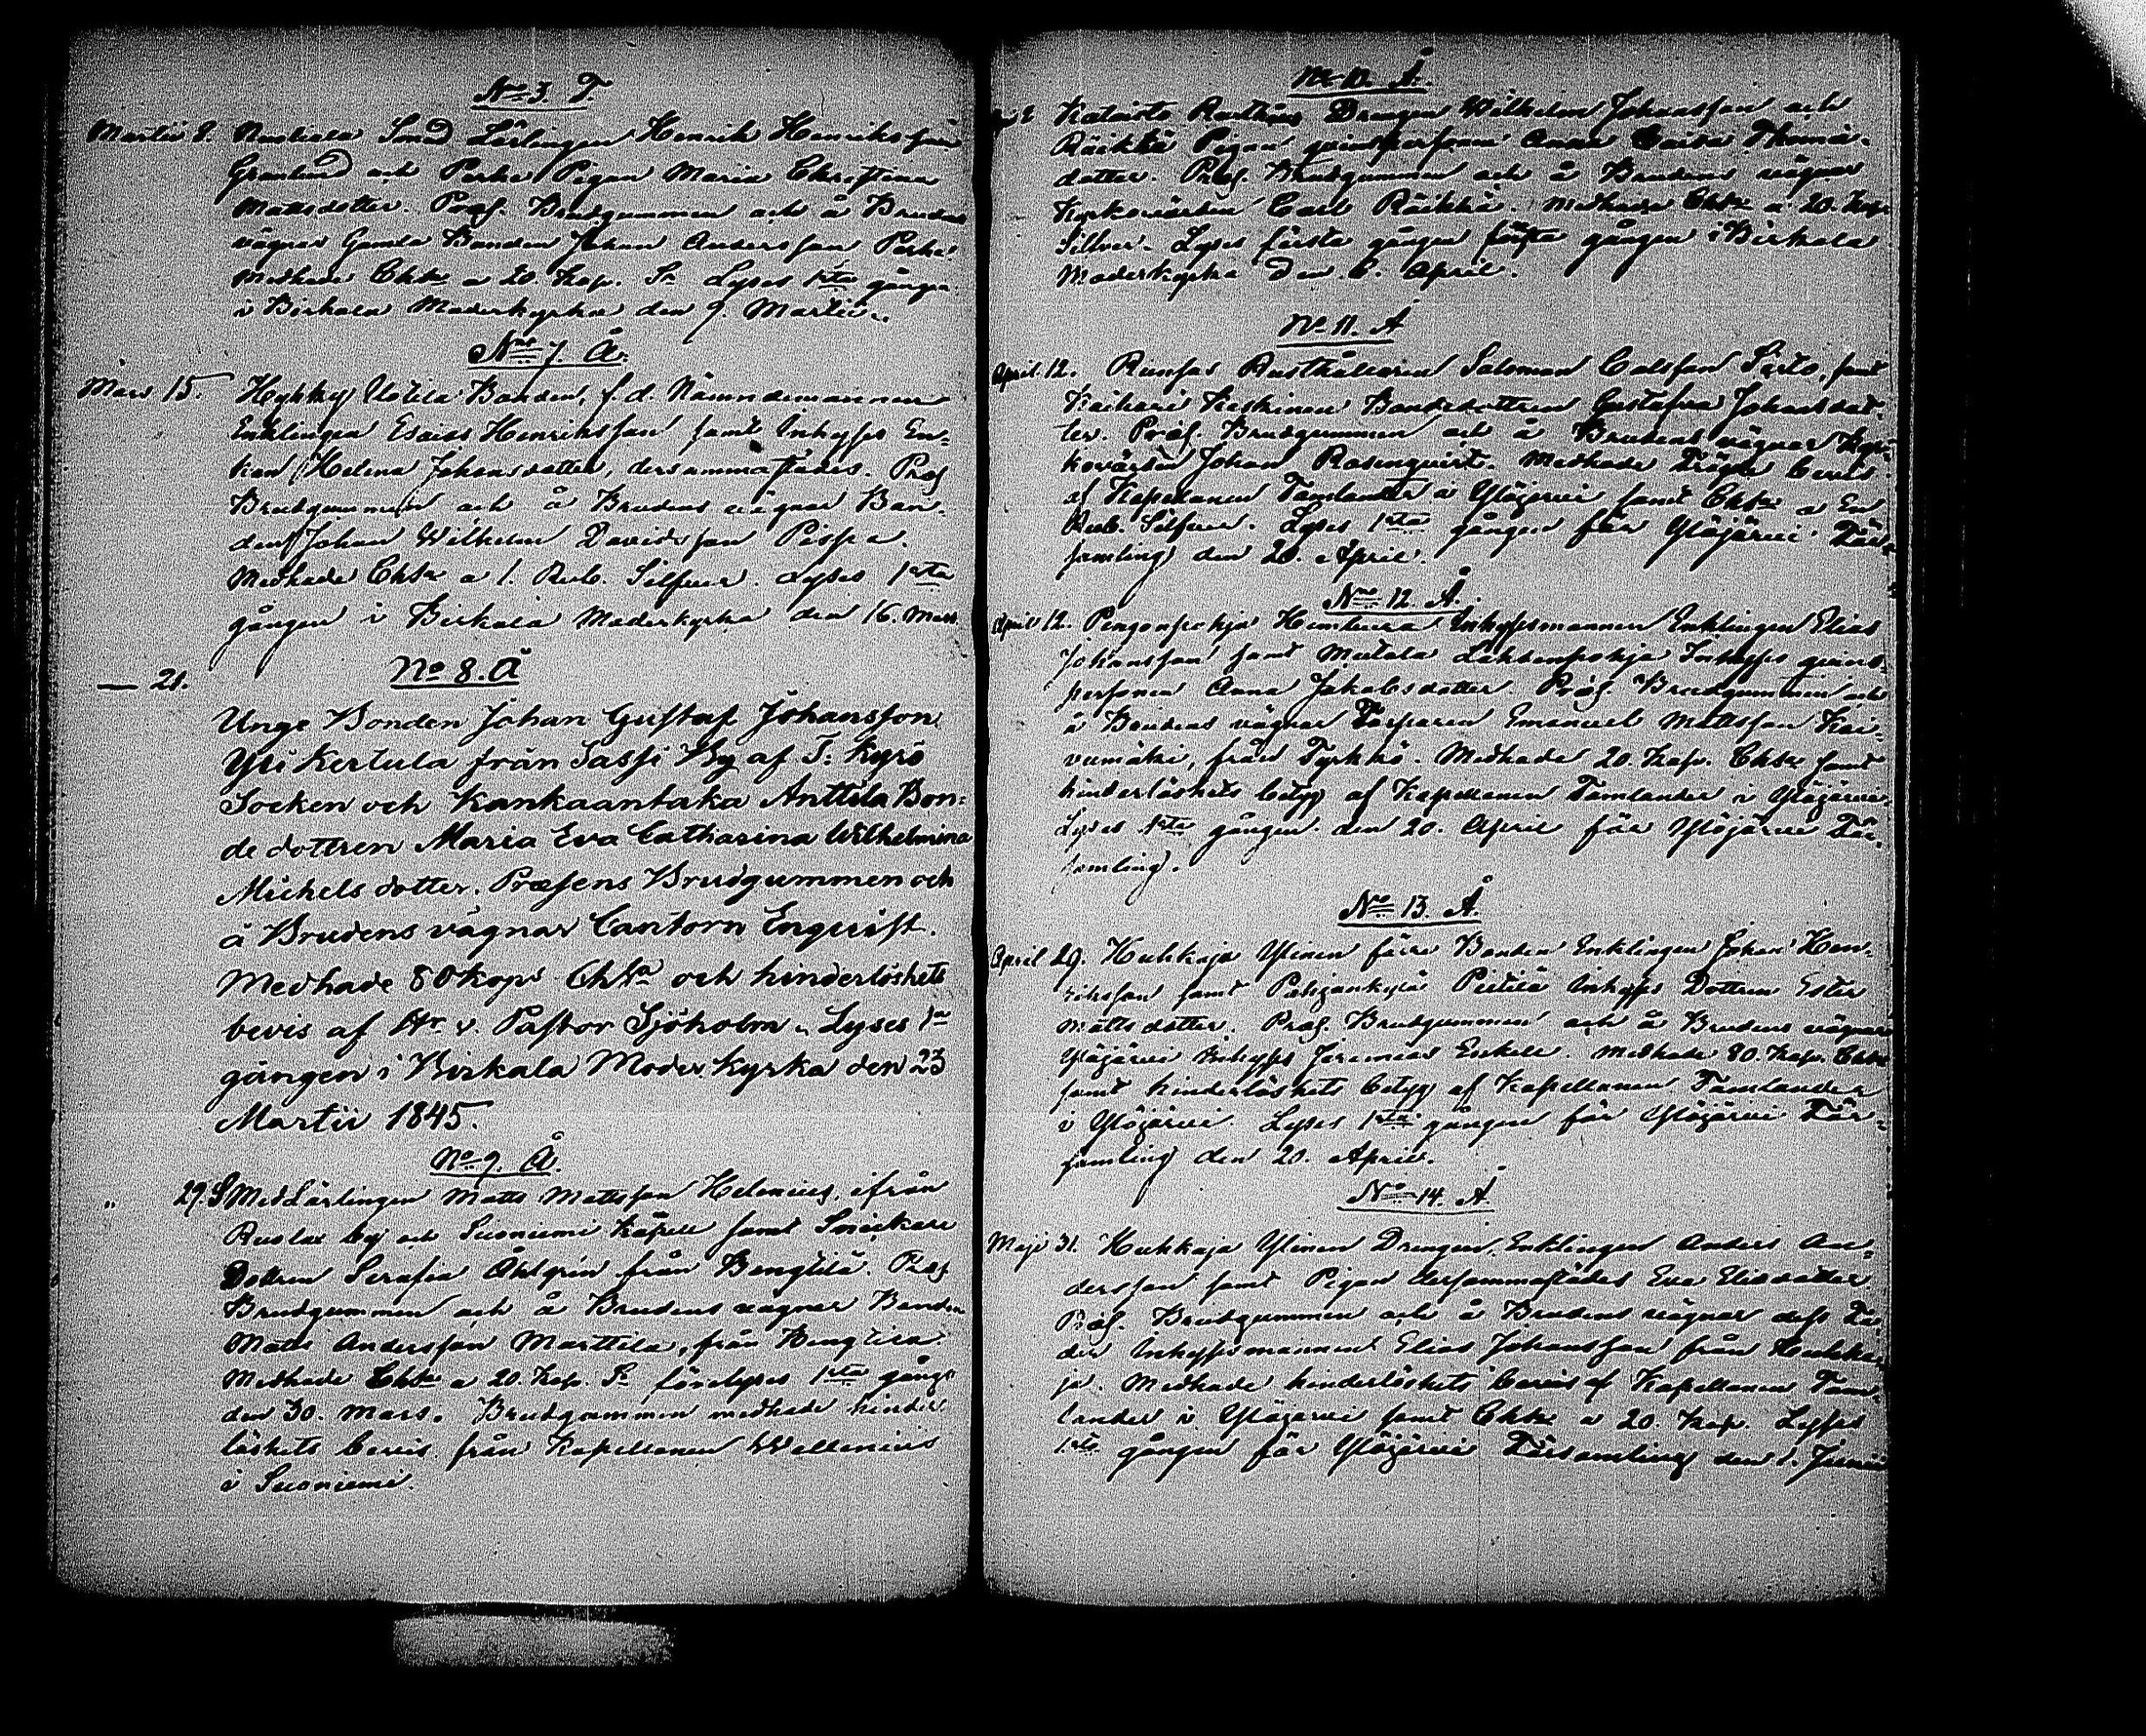 No 3. T.
Martii 8. Smed Lärlingen Henrik Henriksson
Granlund och Perke Pigan Maria Christina
Mattsdotter. Præs. Brudgummen och å Brudens
vägnar Gamla Bonden Johan Andersson Perke.
Medhade Chta a 20. Kop. Sr Lyses 1sta gången
i Birkala Moderkyrka den 9. Martii.
No 7. Å.
Mars 15. Hyhky Uotila Bonden, f.d. Nämndemannen
Enklingen Esaias Henriksson samt Inhyses En-
kan Helena Johansdotter, dersammastädes. Præs
Brudgummen och å Brudens vägnar Bon-
den Johan Wilhelm Davidsson Pispa.
Medhade Chta a 1. Rub. Silfver. Lyses 1sta
gången i Birkala Moderkyrka den 16. Mars.
— 21. No 8. Å
Unge Bonden Johan Gustaf Johansson
Yli Kertula från Sassi By af T: Kyrö
Socken och Kankaantaka Anttila Bon=
de dottren Maria Eva Catharina Wilhelmina
Michels dotter. Præsens Brudgummen och
å Brudens vägnar Cantorn Enqvist.
Medhade 80 kop. Chta och hinderlöshets
bevis af Hr v. Pastor Sjöholm. Lyses 1a
gången i Birkala Moder Kyrka den 23
Martii 1845.
No 9. Å.
" 29. SmedLärlingen Matts Mattsson Helenius, ifrån
by och Suoniemi Kapell samt Snickare
Dottren Serafia Åhlgrén från Bengtilä. Præs
Brudgummen och å Brudens vägnar Bonden
Matts Andersson Marttila, från Bengtilä
Medhade Chta a 20. Kop. Sr förelyses 1sta gång
den 30. Mars. Brudgummen medhade hinder
löshets bevis från Kapellanen Wallenius
i Suoniemi.
No 10. Å.
Katavisto Rusthålls Drengen Wilhelm Johansson och
Räikkä Pigan qvinspersonen Anna Caisa Thomæ-
dotter. Præs. Brudgummen och å Brudens vägnar
Kyrkovärden Carl Räikkä. Medhade Chta a 20. Kop.
Silfver. Lyses första gången första gången i Birkala
Moderkyrka den 6. April.
No 11. Å
April 12. Rusthållaren Salomon samt
Keskinen Bondedottren Gustafva Johansdot-
ter. Præs. Brudgummen och å Brudens vägnar Kyr-
kovärden Johan Rosenqvist. Medhade bevis
af Kapellanen Tamlander i Ylöjärvi samt Chta a En
Rub. Silfver. Lyses 1sta gången för Ylöjärvi För-
samling den 20. April.
No 12. Å.
April 12. Pengonpohja Inhysesmannen Enklingen Elias
Johansson samt Mutala Lahdenpohja Inhyses qvins-
personen Anna Jakobsdotter. Præs. Brudgummen och
å Brudens vägnar Torparen Emanuel Mattsson Kai-
vumäki, från Tyrkkö. Medhade 20. Kop. Chta samt
hinderlöshets betyg af Kapellanen Tamlander i Ylöjärvi.
Lyses 1sta gången den 20. April för Ylöjärvi För-
samling.
No 13. Å.
April 29. Huhkaja Ylinen förre Bonden Enklingen Johan Hen-
riksson samt Inhyses Dottren Ester
Mattsdotter. Præs. Brudgummen och å Brudens vägnar
Ylöjärvi Inhyses Jeremias Enkell. Medhade 80. Kop. Chta
samt hinderlöshets betyg af Kapellanen Tamlander
i Ylöjärvi. Lyses 1sta gången för Ylöjärvi För-
samling den 20. April.
No 14. Å.
Maji 31. Huhkaja Ylinen Drengen, Enklingen Anders An-
dersson samt Pigan dersammastädes Eva Eliædotter.
Præs. Brudgummen och å Brudens vägnar dess Fa-
der Inhysesmannen Elias Johansson från Huhka-
ja. Medhade hinderlöshets bevis af Kapellanen Tam-
lander i Ylöjärvi samt Chta a 20. Kop. Lyses
1sta gången för Ylöjärvi Församling den 1. Junii